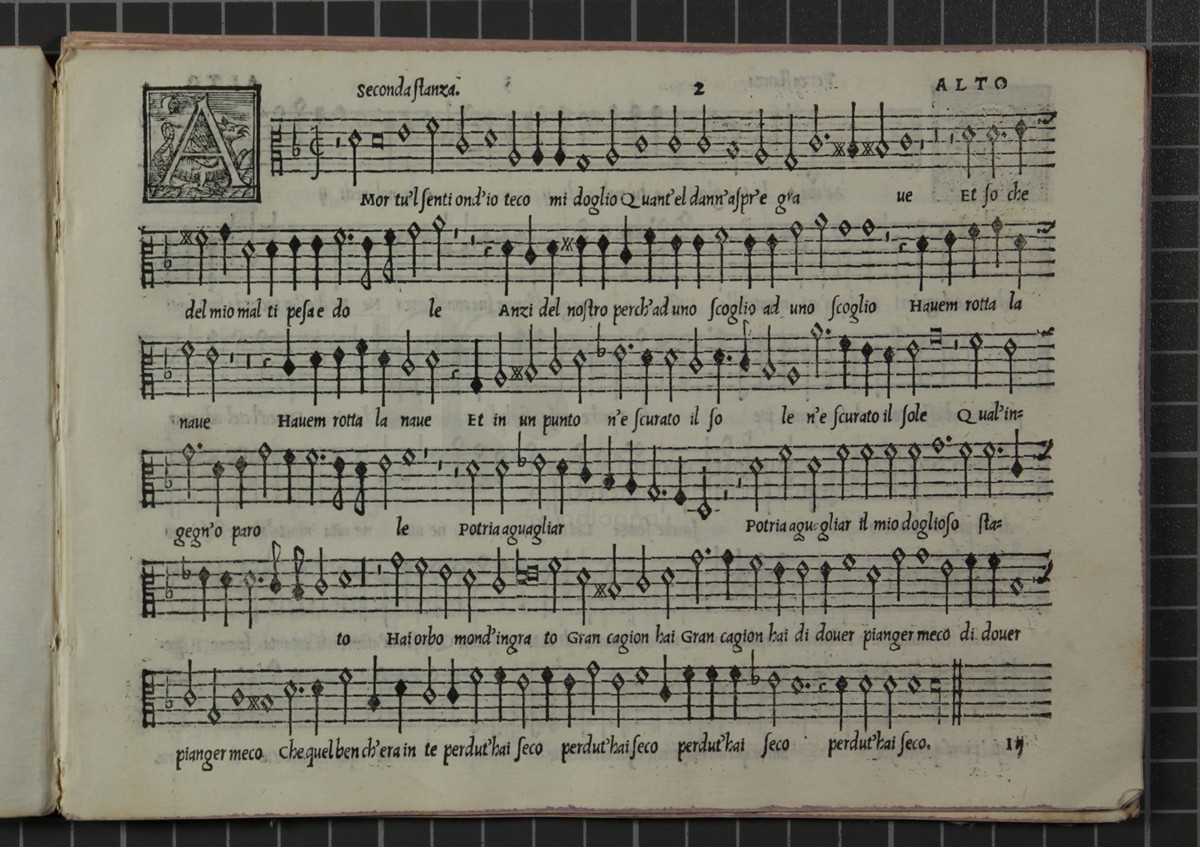 Seconda ſtanza. 2 ALTO
A Mor tu'l ſenti ond'io teco mi doglio Quant'el dann'aſpr'e gra ue Et ſo che
del mio mal ti peſa e do le Anzi del noſtro perch'ad uno ſcoglio ad uno ſcoglio Hauem rotta la
naue Hauem rotta la naue Et in un punto n'e ſcurato il ſo le n'e ſcurato il ſole Qual'in=
gegn'o paro le Potria aguagliar Potria aguagliar il mio doglioſo ſta=
to Hai orbo mond'ingra to Gran cagion hai Gran cagion hai di douer pianger meco di douer
pianger meco Che quel ben ch'era in te perdut'hai ſeco perdut'hai ſeco perdut'hai ſeco perdut'hai ſeco.